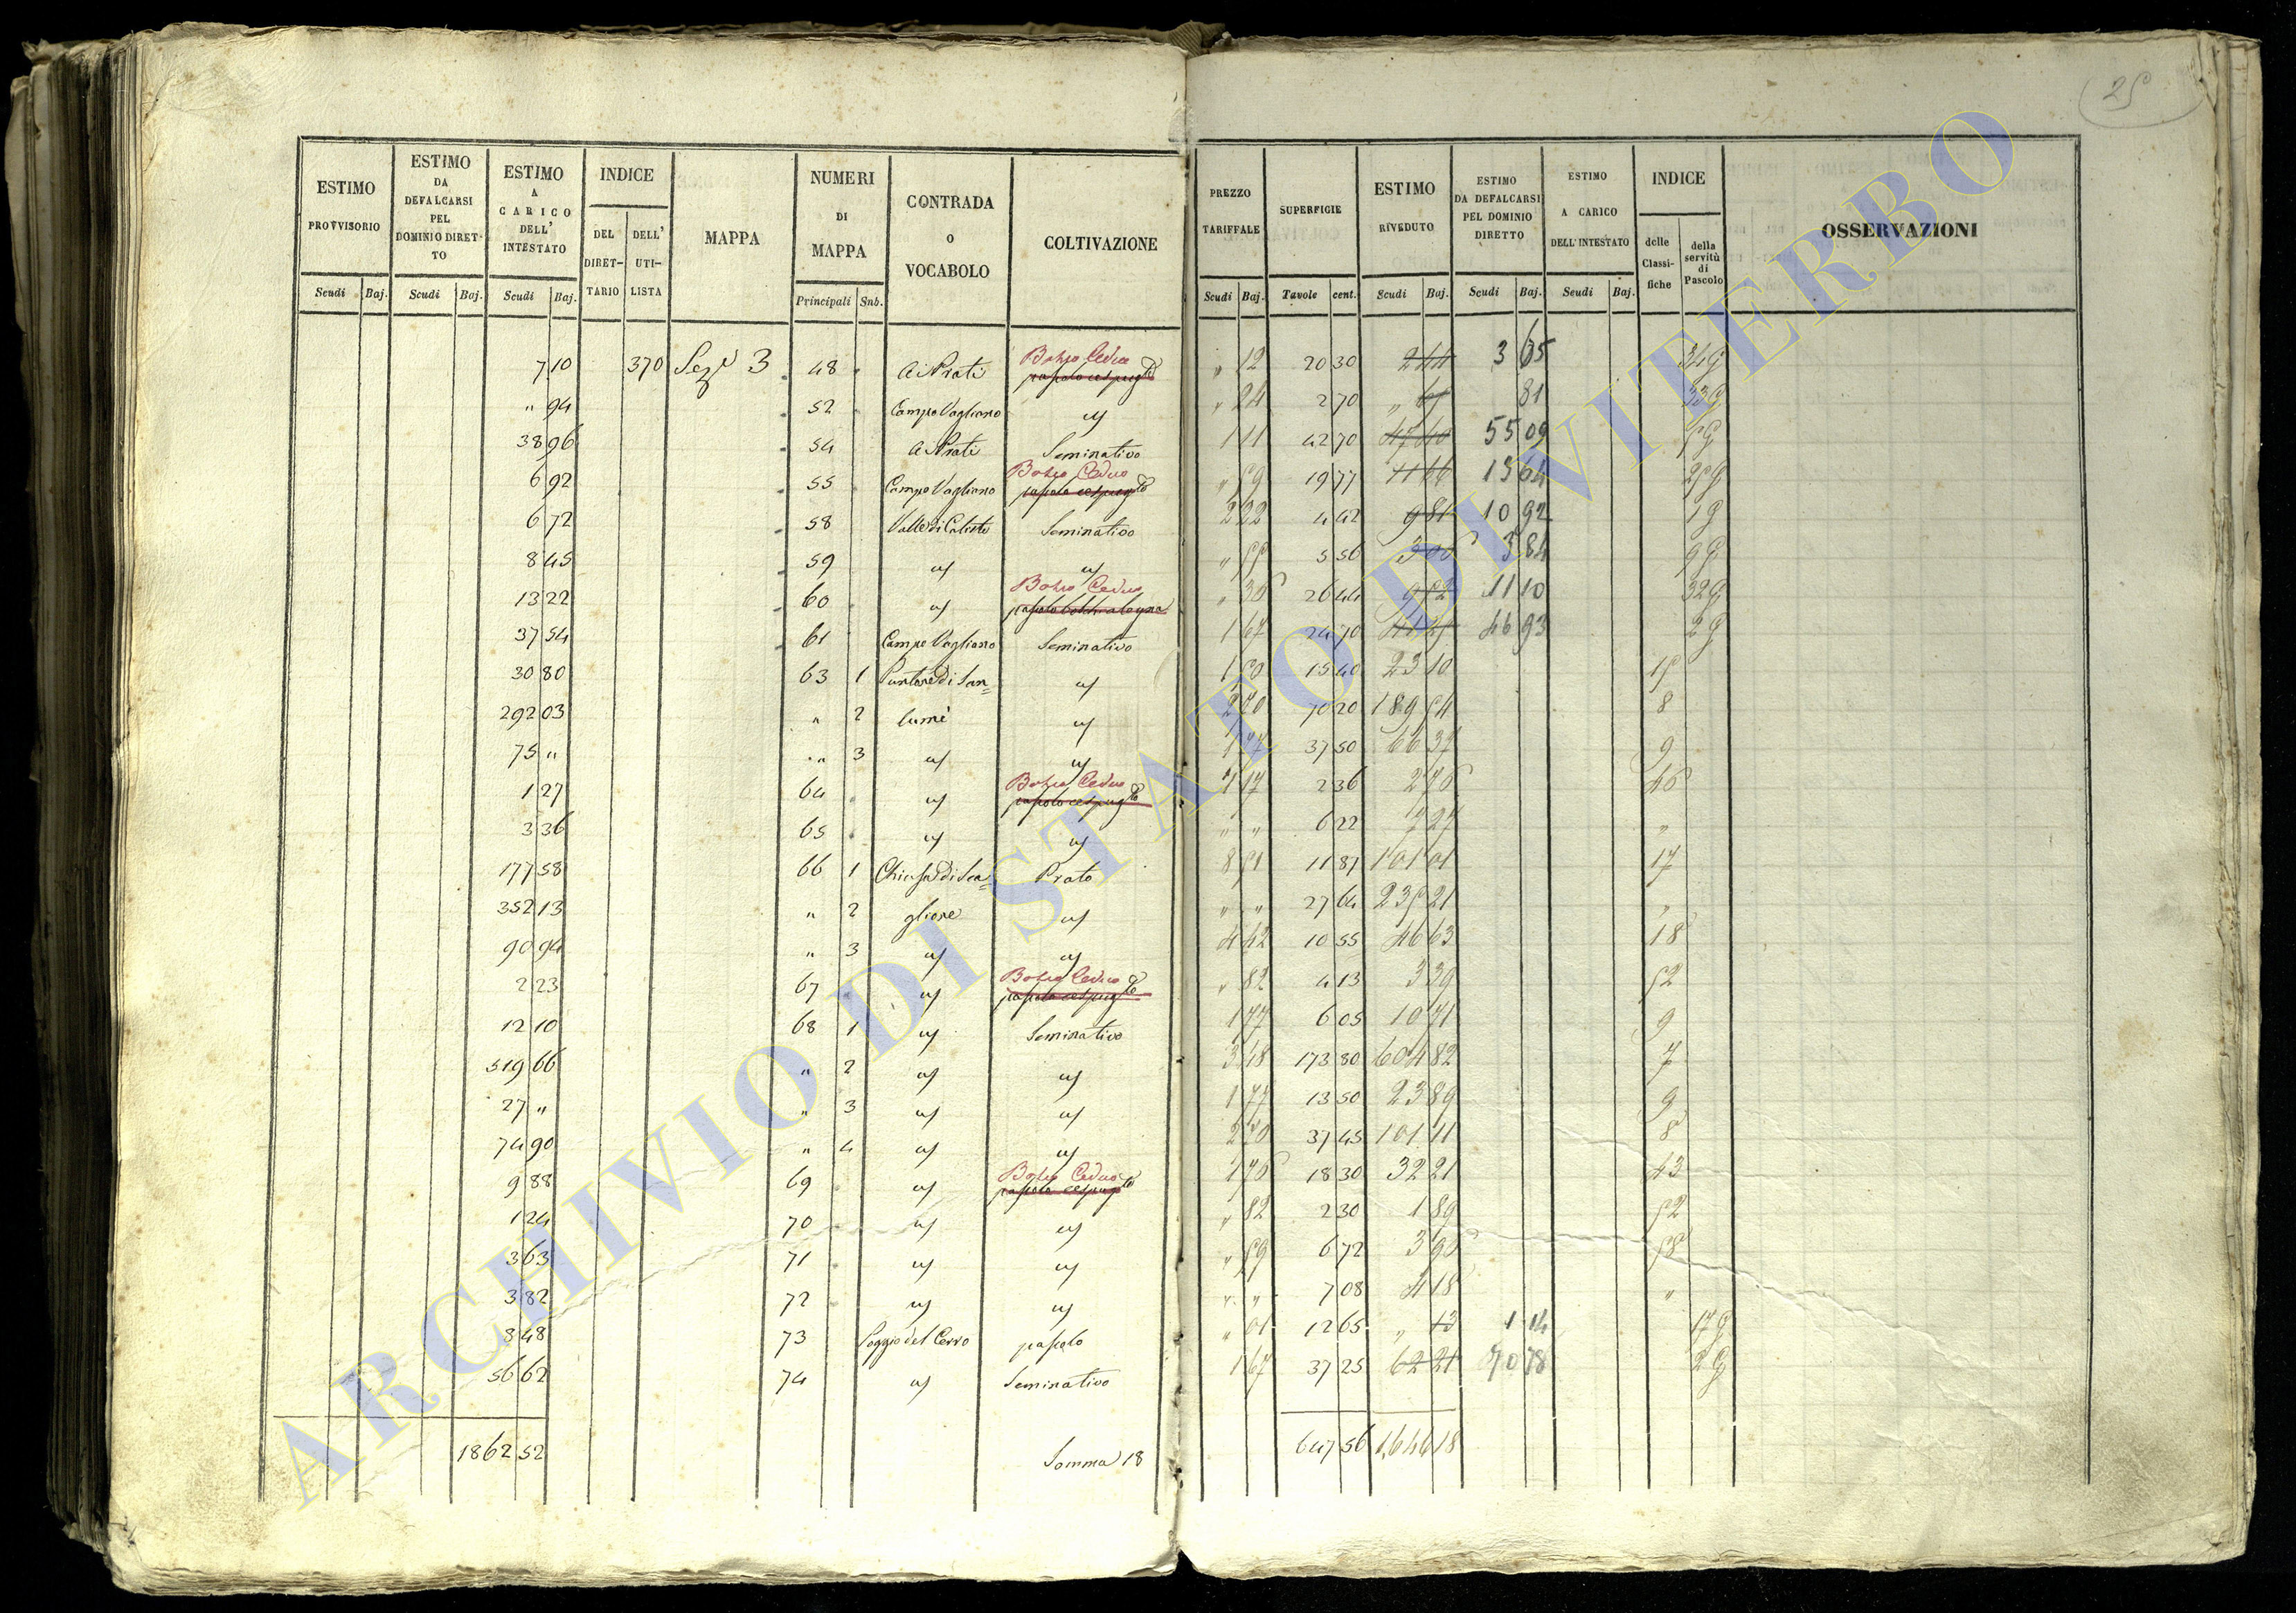 25
ESTIMO PROVVISORIO Scudi Baj.
ESTIMO DA DEFALCARSI PEL DOMINIO DIRETTO Scudi Baj.
ESTIMO A CARICO DELL' INTESTATO Scudi Baj.
INDICE DEL DIRETTARIO DELL' UTILISTA
MAPPA
NUMERI DI MAPPA Principali Sub.
CONTRADA O VOCABOLO
COLTIVAZIONE
PREZZO TARIFFALE Scudi Baj.
SUPERFICIE Tavole cent.
ESTIMO RIVEDUTO Scudi Baj.
ESTIMO DA DEFALCARSI PEL DOMINIO DIRETTO Scudi Baj.
ESTIMO A CARICO DELL' INTESTATO Scudi Baj.
INDICE delle Classifiche della servitù di Pascolo
OSSERVAZIONI
7 10 370 Sezе 3 48 Ai Prati Bosco Ceduo " 12 20 30 2 44 3 65 34 G
" 94 52 Campo Vagliano " 24 2 70 " 81 33 G
38 96 54 Ai Prati Seminativo 1 11 42 70 47 40 55 09 5 G
6 92 55 Campo Vagliano Bosco Ceduo " 59 19 77 11 66 13 64 25 G
6 72 58 Seminativo 2 22 4 42 9 81 10 92 1 G
8 45 59 " 55 5 56 3 84
13 22 60 Bosco Ceduo " 36 26 44 9 52 11 10 32 G
37 54 61 Campo Vagliano Seminativo 1 67 24 70 41 25 46 93 2 G
30 80 63 1 1 50 15 40 23 10 15
292 03 " 2 lumè 2 70 70 20 189 54 8
75 " " 3 1 77 37 50 66 37 9
1 27 64 Bosco Ceduo 1 17 2 36 2 76 46
3 36 65 " " 6 22 7 27 "
177 58 66 1 Chiusa di Sca= Prato 8 51 11 87 101 01 17
352 13 " 2 gliore " " 27 64 235 21 "
90 94 " 3 4 42 10 55 46 63 18
2 23 67 Bosco Ceduo " 82 4 13 3 39 52
12 10 68 1 Seminativo 1 77 6 05 10 71 9
519 66 " 2 3 48 173 80 604 82 7
27 " " 3 1 77 13 50 23 89 9
74 90 " 4 2 70 37 45 101 11 8
9 88 69 Bosco Ceduo 1 76 18 30 32 21 43
1 24 70 " 82 2 30 1 89 52
3 63 71 " 59 6 72 3 96 58
3 82 72 " " 7 08 4 18 "
8 48 73 Poggio del Cerro pascolo " 01 12 65 " 13 1 14 17 G
56 62 74 Seminativo 1 67 37 25 62 21 70 78 2 G
1862 52 Somma 18 647 56 1,646 18
ARCHIVIO DI STATO DI VITERBO